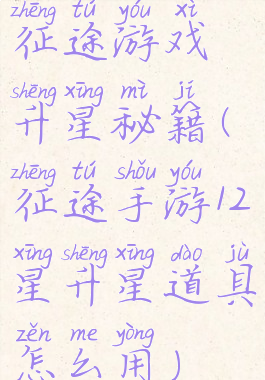 zhēng tú yóu xì
征途游戏
shēng xīng mì jí
升星秘籍(
zhēng tú shǒu yóu
征途手游12
xīng shēng xīng dào jù
星升星道具
zěn me yòng
怎么用)